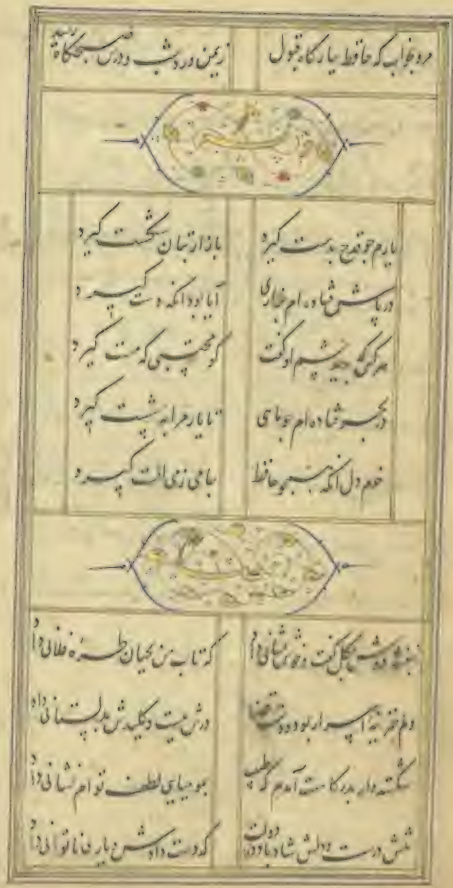 مرو بخواب که حافظ ببارگاه قبول ز یمن ورد شب و درس صبحگاه رسید
یارم چو قدح بدست گیرد بازار بتان شکست گیرد
در پاش فتاده ام بزاری آیا بود انکه دست گیرد
هرکس که بدید چشم او گفت کو محتسبی که مست گیرد
در بحر فتاده ام چو ماهی تا یار مرا به شست گیرد
خرم دل انکه همچو حافظ جامی ز می الست گیرد
بنفشه دوش بگل گفت و خوش نشانی داد که تاب من بجهان طره فلانی داد
دلم خزینه اسرار بود و دست قضا درش ببست و کلیدش بدلستانی داد
شکسته وار بدرگاهت آمدم که طبیب بمومیایی لطف توام نشانی داد
تنش درست و دلش شاد باد که دست دادش و یاری ناتوانی داد